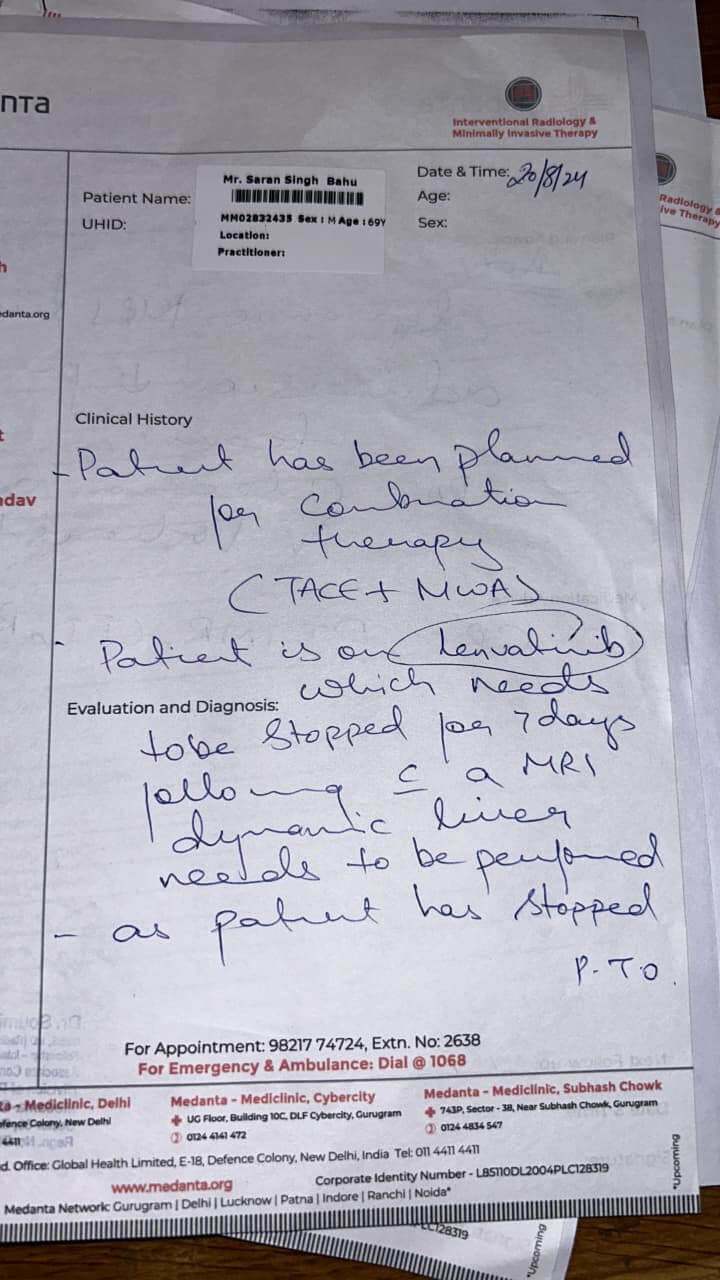 nta
Interventional Radiology &
Minimally Invasive Therapy
Patient Name:
UHID:
Mr. Saran Singh Bahu
MM02832435 Sex : M Age : 69Y
Location:
Practitioner:
Date & Time: 20/8/24
Age:
Sex:
Radiology &
ive Therapy
h
edanta.org
t
adav
Clinical History
- Patient has been planned
for combination
therapy
(TACE + MWA)
- Patient is on Lenvatinib
which needs
Evaluation and Diagnosis:
to be stopped for 7 days
following c a MRI
dynamic liver
needs to be performed
- as patient has stopped
P.T.O.
For Appointment: 98217 74724, Extn. No: 2638
For Emergency & Ambulance: Dial @ 1068
ta - Mediclinic, Delhi
efence Colony, New Delhi
4411
Medanta - Mediclinic, Cybercity
UG Floor, Building 10C, DLF Cybercity, Gurugram
0124 4141 472
Medanta - Mediclinic, Subhash Chowk
743P, Sector - 38, Near Subhash Chowk, Gurugram
0124 4834 547
d. Office: Global Health Limited, E-18, Defence Colony, New Delhi, India Tel: 011 4411 4411
www.medanta.org
Corporate Identity Number - L85110DL2004PLC128319
Medanta Network: Gurugram | Delhi | Lucknow | Patna | Indore | Ranchi | Noida*
*Upcoming
LC128319
*Upcoming